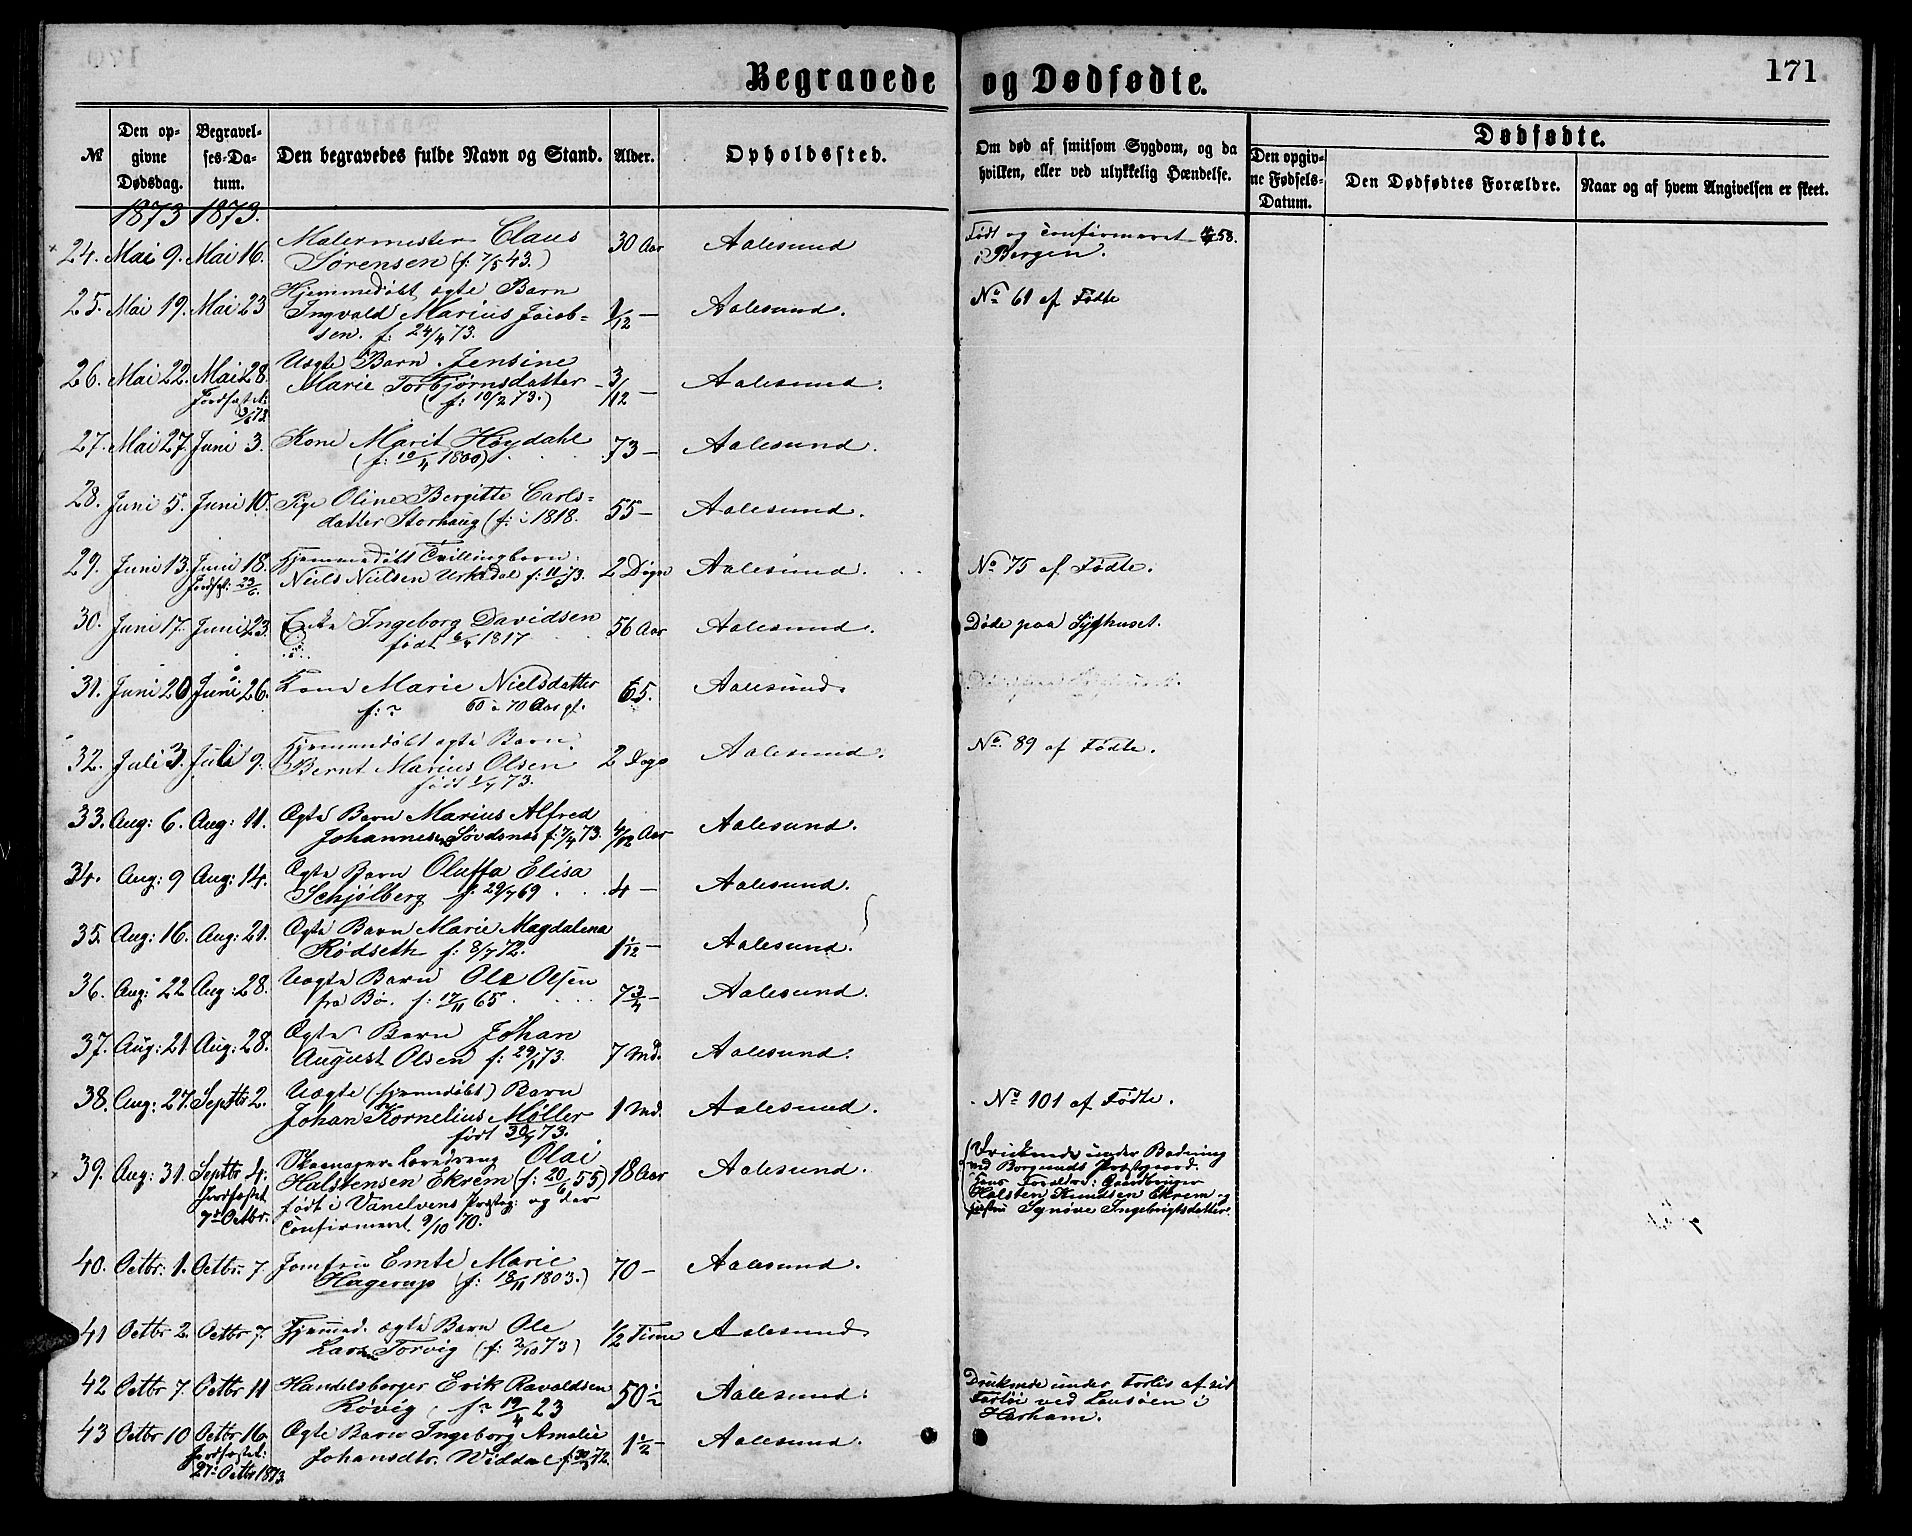 Begravede og Dødfødte.
171
№
Den opgivne Dødsdag.
Begravelses-Datum.
Den begravedes fulde Navn og Stand.
Alder.
Opholdssted.
Om død af smitsom Sygdom, og da hvilken, eller ved ulykkelig Hændelse.
Dødfødte.
Den opgivne Fødsels-Datum.
Den Dødfødtes Forældre.
Naar og af hvem Angivelsen er skeet.
1873 1873.
24. Mai 9. Mai 16. Malermester Claus 30 Aar Aalesund Født og confirmeret 58.
Sørensen (f: 7/5 43.) i Bergen.
25. Mai 19. Mai 23 Hjemmedøbt ægte Barn
Ingvald Marius Jacob= 1/12 — Aalesund. No 61 af Fødte
sen. f: 24/4 73.
26. Mai 22. Mai 28. Uægte Barn. Jensine
Jordfastet: Marie Torbjørnsdatter 3/12 — Aalesund.
(f: 10/2 73.)
27. Mai 27. Juni 3. Kone Marit Høydahl 73 — Aalesund.
(f: 10/4 1800)
28. Juni 5. Juni 10. Pige Oline Bergitte Carls=
datter Storhaug (f: i 1818. 55 — Aalesund.
29. Juni 13. Juni 18. Hjemmedøbt Tvillingbarn
Jordfst: 23/6. Niels Nielsen Urkedal f: 11/6 73. 2 Døgn Aalesund. No 75 af Fødte.
30. Juni 17. Juni 23. Enke Ingeborg Davidsen 56 Aar Aalesund. Døde paa Sygehuset.
født 6/4 1817
31. Juni 20 Juni 26. Kone Marie Nielsdatter 65. Aalesund.
f: ? 60 à 70 Aar gl.
32. Juli 3. Juli 9. Hjemmedøbt ægte Barn
Bernt Marius Olsen 2 Døgn Aalesund. No. 89 af Fødte.
født 1/7 73.
33. Aug: 6. Aug: 11. Ægte Barn Marius Alfred
Johannesen Søvdsnes f: 7/4 73. 4/12 Aar Aalesund.
34. Aug: 9 Aug: 14. Ægte Barn Oluffa Elisa
Schjølberg f: 29/7 69 4 — Aalesund.
35. Aug: 16. Aug: 21. Ægte Barn Marie Magdalena
Rødseth f: 8/7 72. 1 1/12 — Aalesund.
36. Aug: 22 Aug: 28. Uægte Barn Ole Olsen
fra Bø. f: 17/11 65. 7 3/4 — Aalesund.
37. Aug: 21 Aug: 28. Ægte Barn Johan
August Olsen f: 29/1 73. 7 Md. Aalesund.
38. Aug: 27. Septbr 2. Uægte (hjemmedøbt) Barn
Johan Kornelius Møller 1 Md. Aalesund. No 101 af Fødte.
født 30/7 73.
39. Aug: 31. Septbr 4. Skomager Læredreng Olai
Halstensen Ekrem (f: 20/6 55) 18 Aar Aalesund.
Jordfastet 7de Octbr. født i Vanelvens Præsteg: og der
confirmeret 9/10 70.
Druknede under Badning
ved Borgunds Præstegaard.
Hans Forældre: Gaardbruger
Halsten Knudsen Ekrem og
Hustru Synøve Ingebrigtsdatter.
40. Octbr: 1. Octbr: 7. Jomfru Emte Marie
Hagerup (f: 18/11 1803.) 70 — Aalesund.
41 Octbr 2. Octbr 7. Hjemmed. ægte Barn Ole
Larsen Torvig (f: 2/10 73) 1/2 Time Aalesund
42 Octbr 7. Octbr 11 Handelsborger Erik Ravaldsen
Røvig, f: 19/4 23 50 1/2 Aalesund.
Druknede under Forlis af sit
Fartøi ved Lausøen i
Harham.
43 Octbr 10 Octbr 16. Ægte Barn Ingeborg Amalie
Jordfastet: Johansdtr. Widdal f: 30/3 72. 1 1/2 — Aalesund.
27: Octbr 1873.